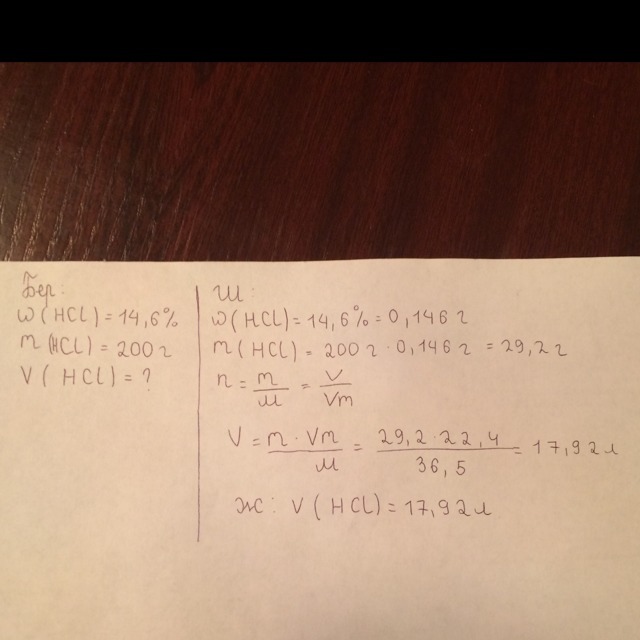 Бер:
w(HCl)=14,6%
m(HCl)=200г
V(HCl)=?
Ш:
w(HCl)=14,6%=0,146г
m(HCl)=200г·0,146г=29,2г
n=m/M=V/Vm
V=m·Vm/M=29,2·22,4/36,5=17,92л
Ж: V(HCl)=17,92л